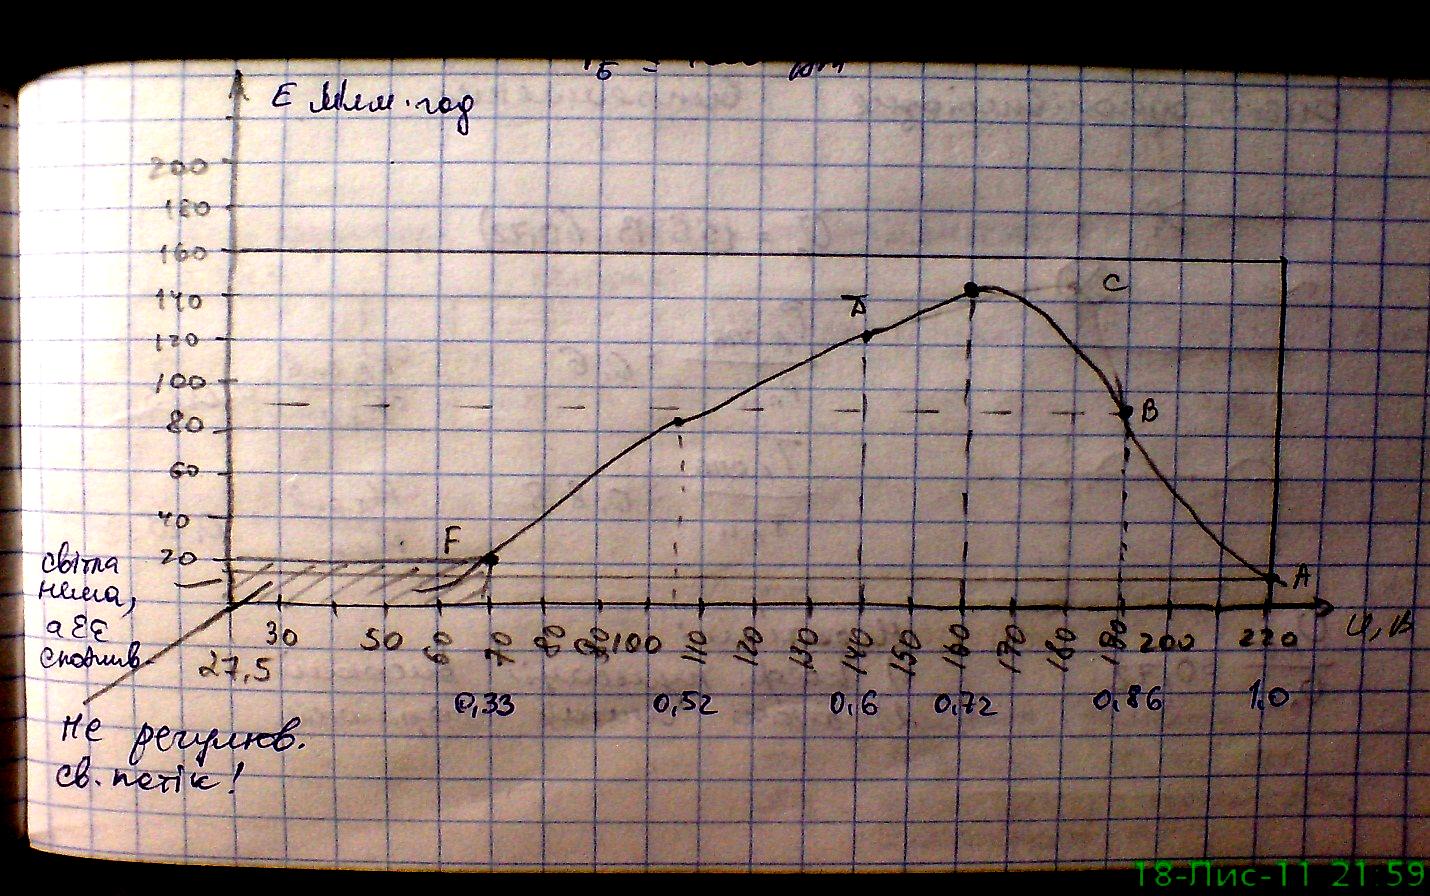 E Млм·год
200
180
160
140
120
100
80
60
40
20
C
D
B
F
A
світла
нема,
а ЕЕ
спожив.
30 50 60 70 80 90 100 110 120 130 140 150 160 170 180 200 220 U, В
27,5
0,33 0,52 0,6 0,72 0,86 1,0
Не регулюв.
св. потік!
18-Лис-11 21:59